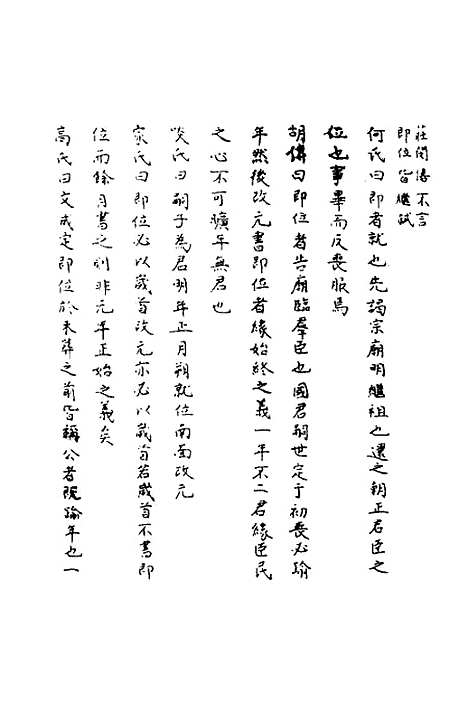 莊閔僖不言
即位皆繼弒
何氏曰即者就也先謁宗廟明繼祖也還之朝正君臣之
位也事畢而反喪服焉
胡傳曰即位者告廟臨羣臣也國君嗣世定于初喪必踰
年然後改元書即位者緣始終之義一年不二君緣臣民
之心不可曠年無君也
啖氏曰嗣子為君明年正月朔就位南面改元
家氏曰即位必以歲首改元亦必以歲首若歲首不書即
位而餘月書之則非元年正始之義矣
高氏曰文成定即位於未葬之前皆稱公者既踰年也一